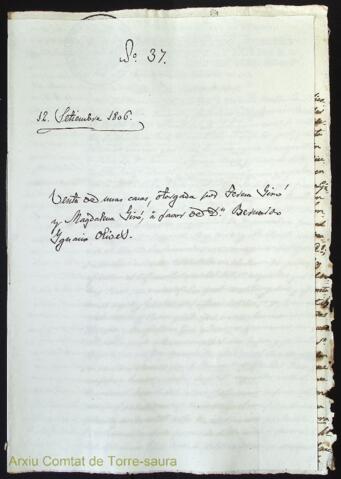 No. 37.
12. Setiembre 1806.
Venta de unas casas, otorgada por Teresa Giró
y Magdalena Giró, à favor de Dn. Bernardo
Ygnacio Olives.
Arxiu Comtat de Torre-saura